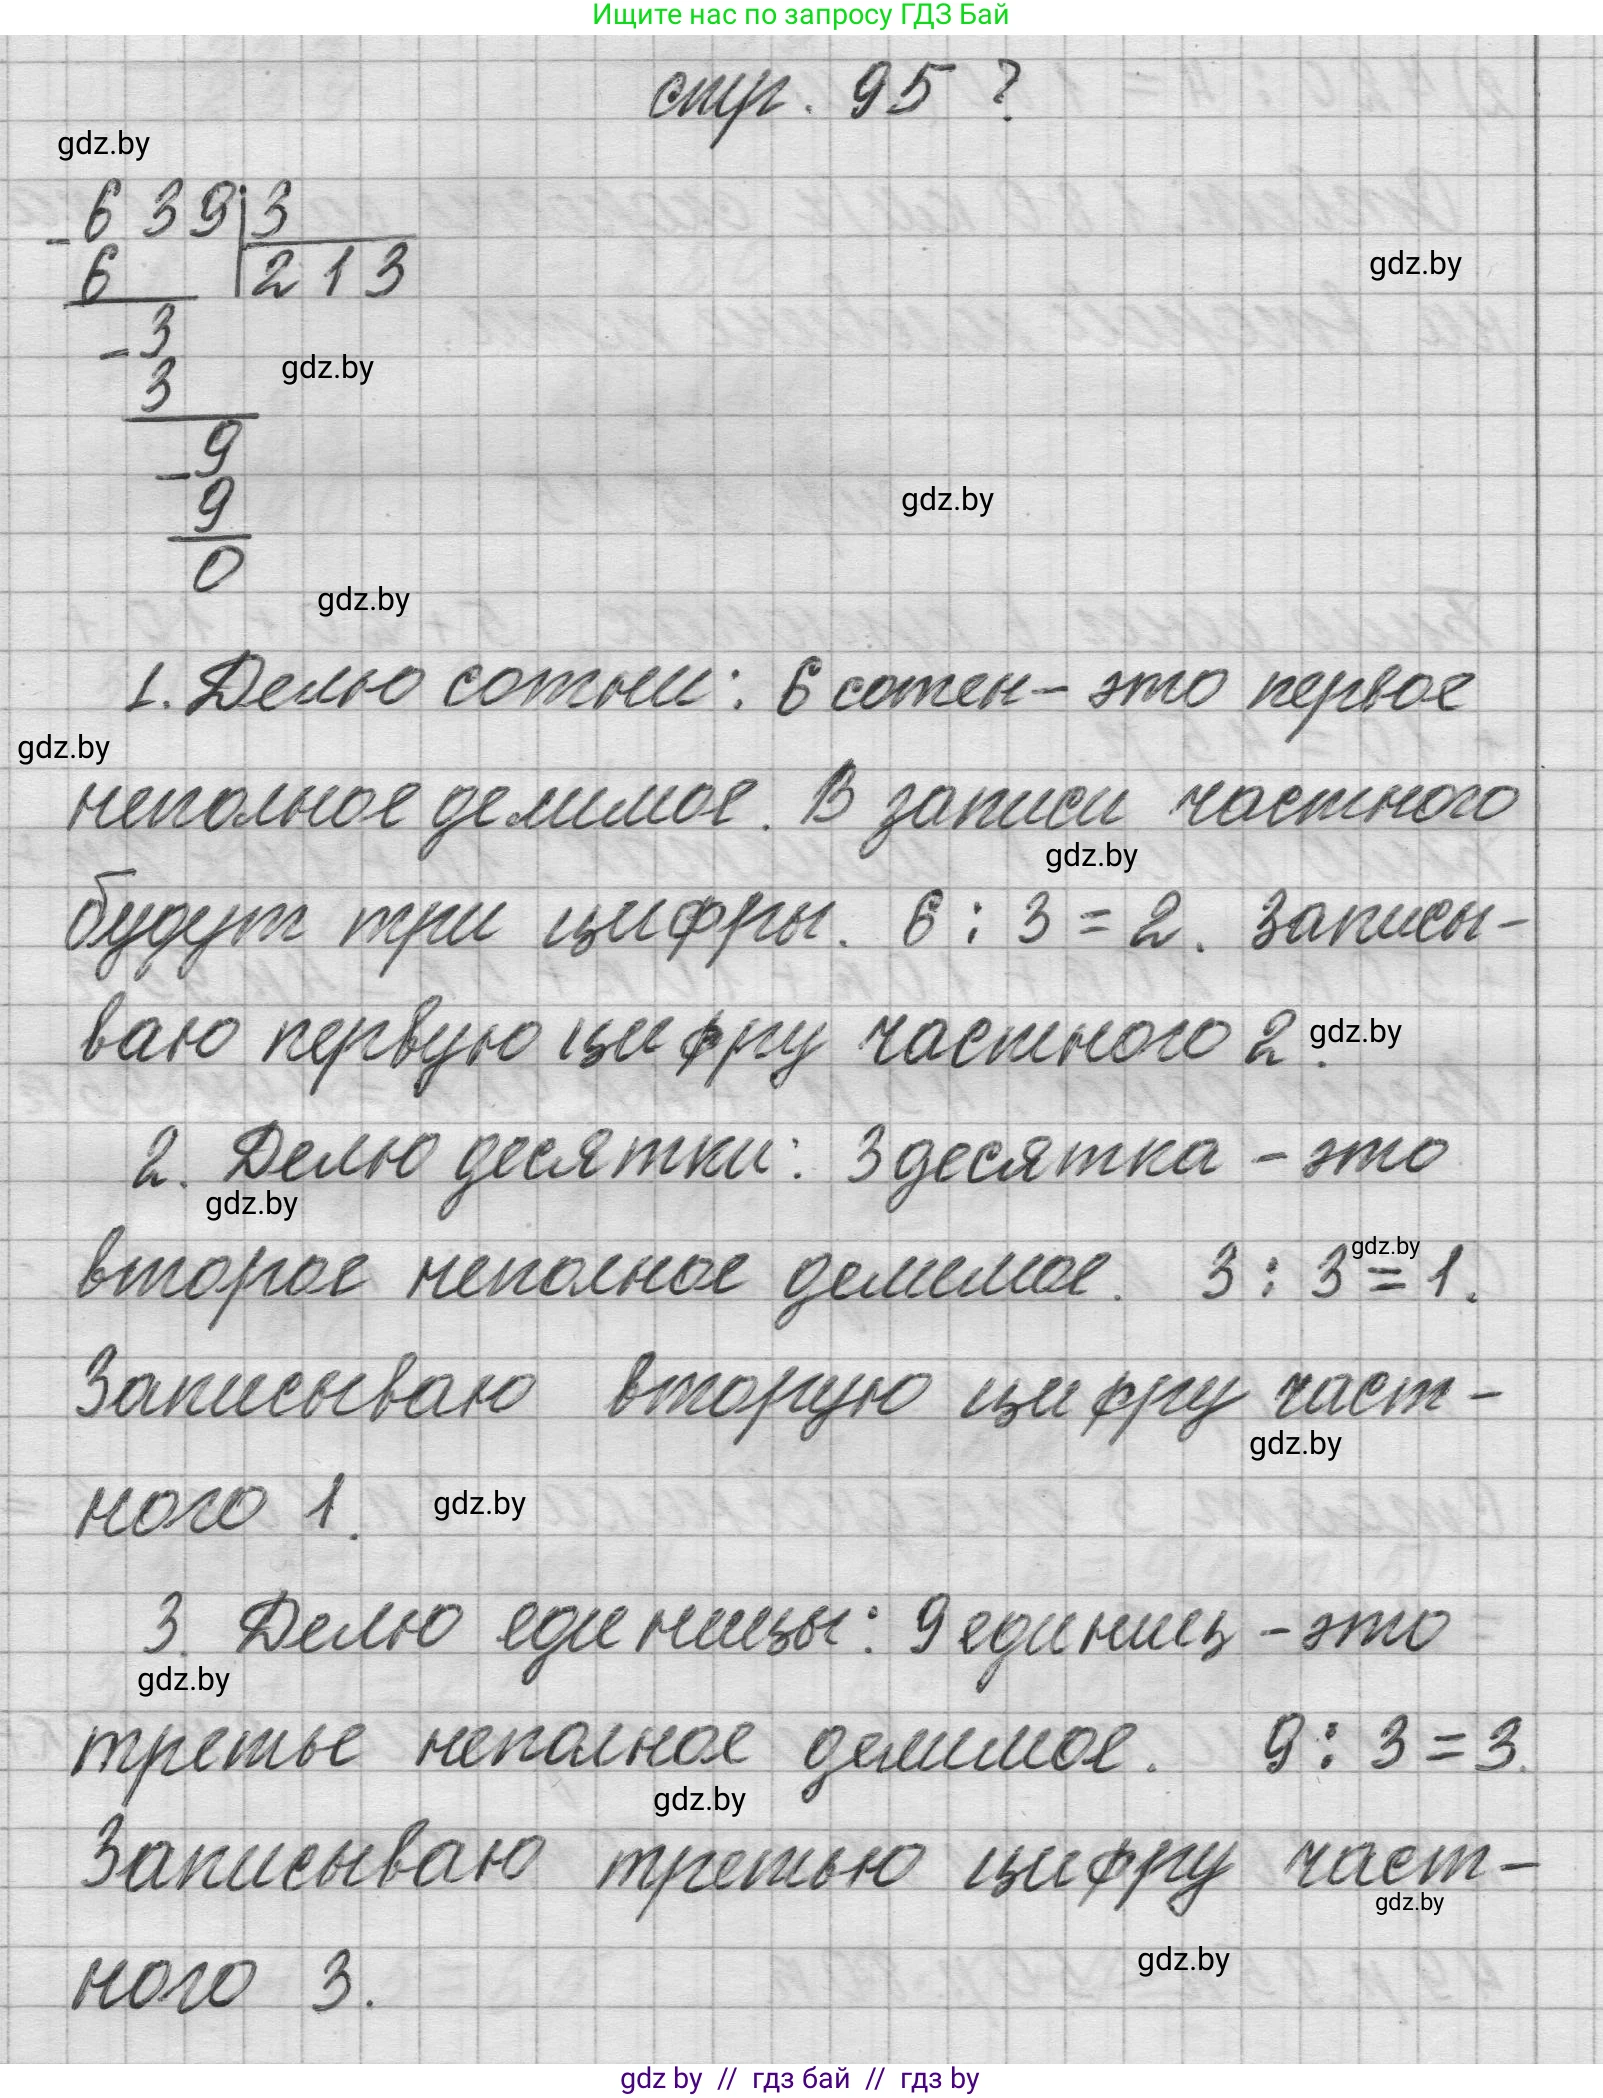 Ищите нас по запросу ГДЗ Бай
стр. 95 ?
gdz.by
- 6 3 9 | 3
6 | 2 1 3
gdz.by
- 3
3
gdz.by
- 9
9
gdz.by
0
gdz.by
1. Делю сотни: 6 сотен – это первое
gdz.by
неполное делимое. В записи частного
gdz.by
будут три цифры. 6 : 3 = 2. Записы-
ваю первую цифру частного 2.
gdz.by
2. Делю десятки: 3 десятка – это
gdz.by
второе неполное делимое. 3 : 3 = 1.
gdz.by
Записываю вторую цифру част-
gdz.by
ного 1.
gdz.by
3. Делю единицы: 9 единиц – это
gdz.by
третье неполное делимое. 9 : 3 = 3.
gdz.by
Записываю третью цифру част-
gdz.by
ного 3.
gdz.by
gdz by // гдз бай // гдз by